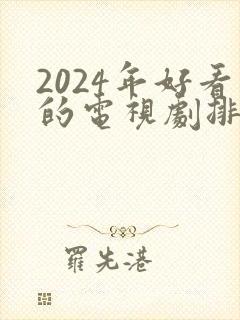 2024年好看
的電視劇排
羅先港